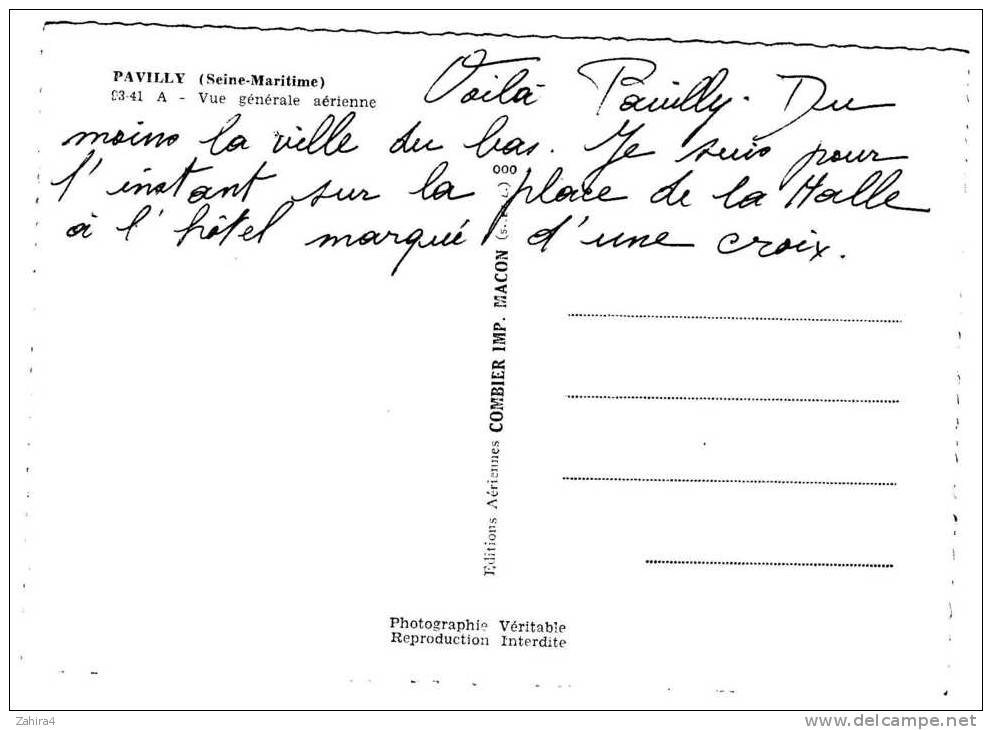 PAVILLY (Seine-Maritime)
93-41 A - Vue générale aérienne
Voilà Pavilly. Du
moins la ville du bas. Je suis pour
l'instant sur la place de la Halle
à l'hôtel marqué d'une croix.
Editions Aériennes COMBIER IMP. MACON
000
Photographie Véritable
Reproduction Interdite
Zahira4
www.delcampe.net